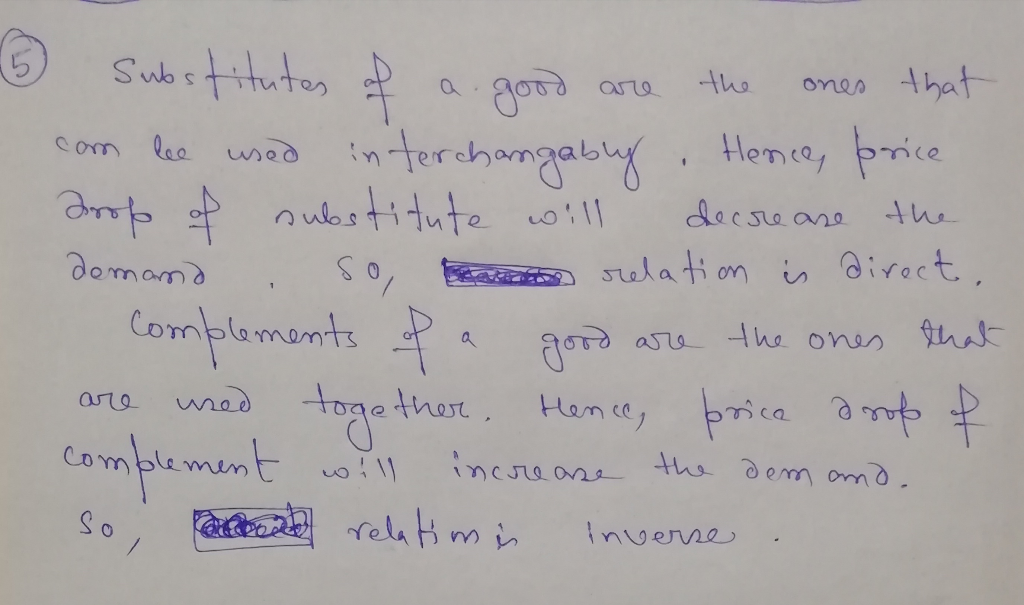 5 Substitutes of a good are the ones that
can be used interchangably. Hence, price
drop of substitute will decrease the
demand. So, relation is direct.
Complements of a good are the ones that
are used together. Hence, price drop of
complement will increase the demand.
So, relation is inverse.